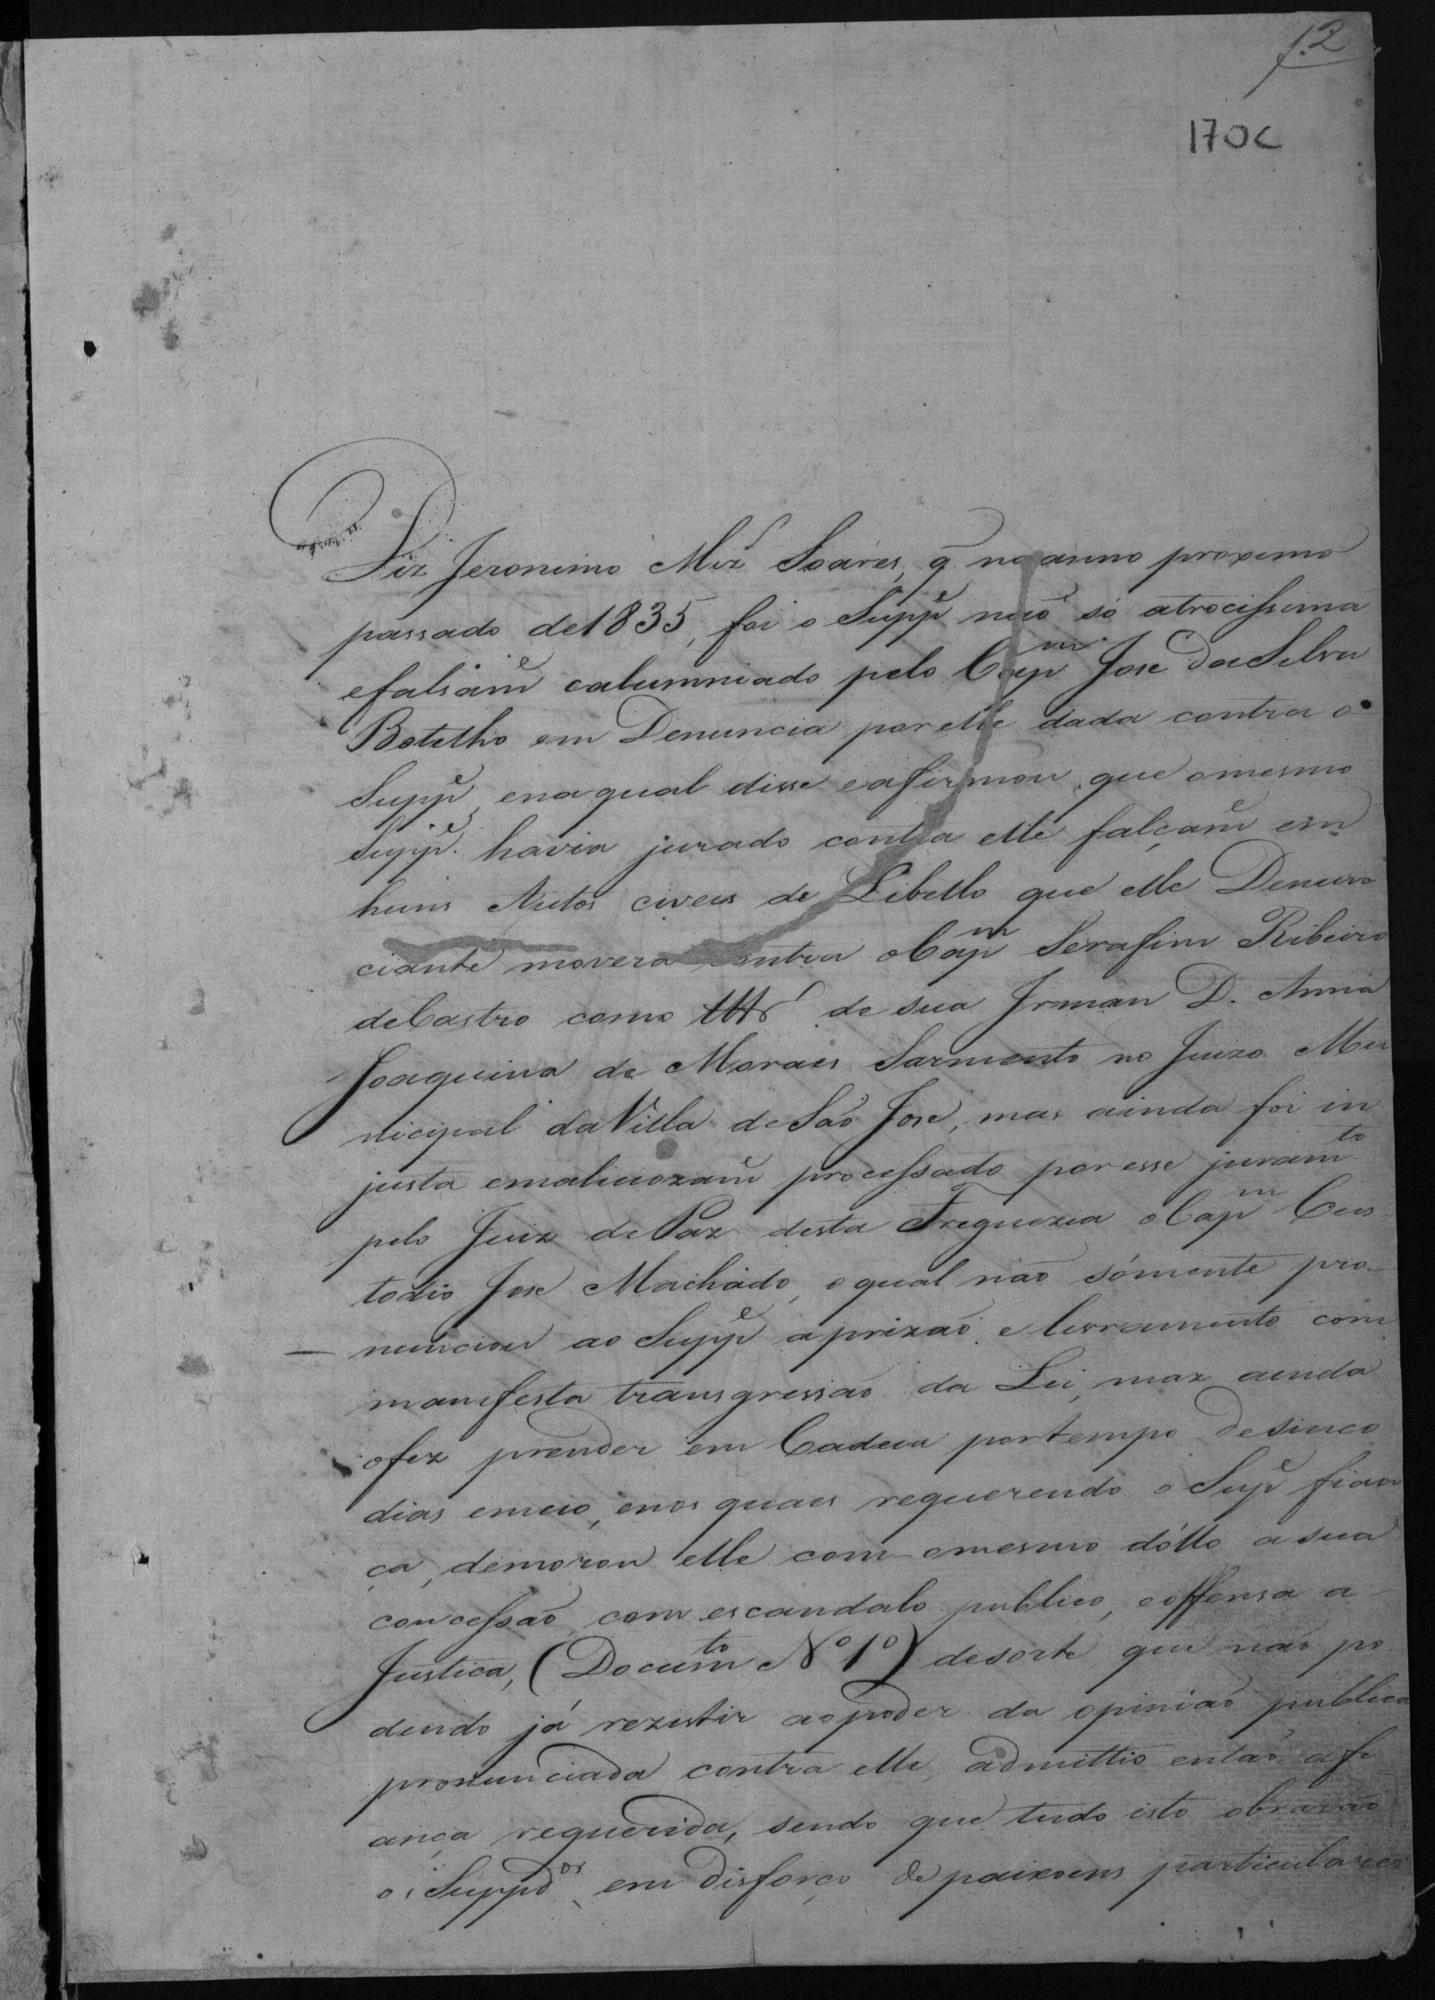 f. 2
170C
Diz Jeronimo Miz Soares, q̃ no anno proximo
passado de 1835, foi o Supp.e não só atrocissima
e falsam.e calumniado pelo Cap.m Jose da Silva
Botelho em Denuncia por elle dada contra o
Supp.e, e na qual disse e afirmou que o mesmo
Supp.e havia jurado contra elle falçam.e em
huns Autos civeis de Libello que elle Denun
ciante movera contra o Cap.m Serafim Ribeiro
de Castro como de sua Irman D. Anna
Joaquina de Moraes Sarmento no Juizo Mu
nicipal da Villa de São Jose, mas ainda foi in
justa e maliciozam.e processado por esse juram.to
pelo Juiz de Paz desta Freguezia o Cap.m Cus
todio Jose Machado, o qual não sómente pro-
nunciou ao Supp.e a prizão, e livramento com
manifesta transgressão da Lei, maz ainda
o fez prender em Cadeia por tempo de sinco
dias e meio, e nos quaes requerendo o Sup.e fian
ça, demorou elle com o mesmo dóllo a sua
concessão com escandalo publico, e offensa a
Justica, (Docum.to Nº 1º) de sorte que não po
dendo já rezistir ao poder da opinião publica
pronunciada contra elle, admittio então a fi
ança requerida, sendo que tudo isto obrarão
os Supp.dos, em disforço de paixoens particulares